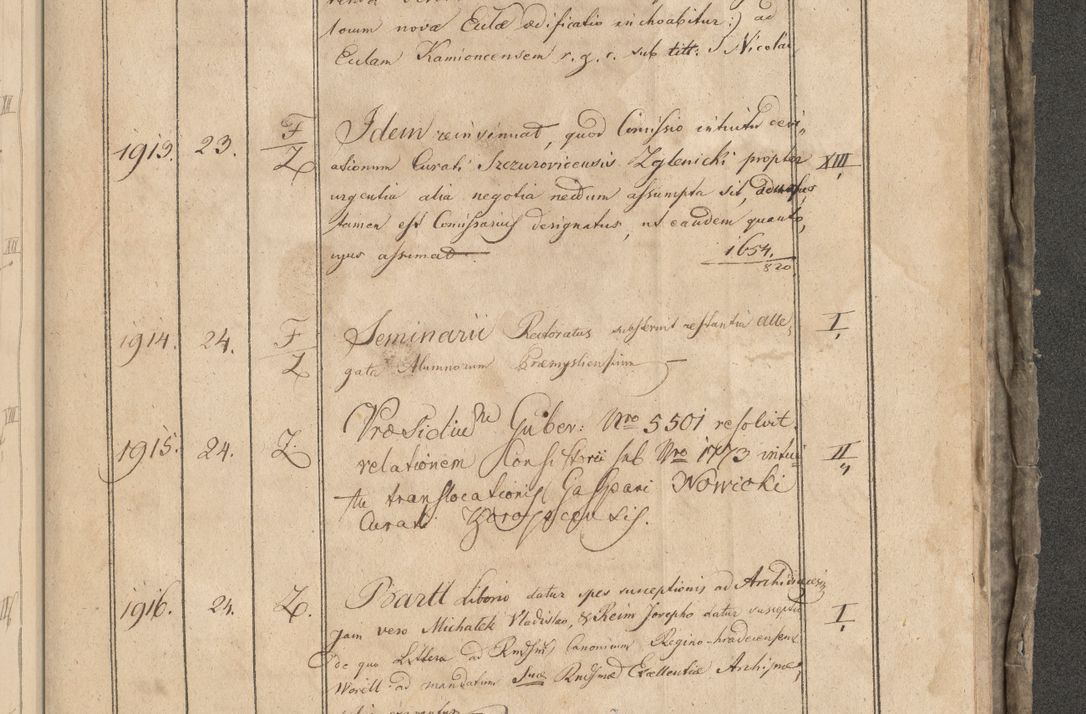 torum nova Eccla ædificatio inchoabitur:) ad
Ecclam Kamioncensem r. g. c. sub titt: S Nicolai
1913. 23. F/Z Idem reinsinuat, quod Comissio intuitu devi„ XIII
ationum Curati Szczurovicensis Zglenicki propter
urgentia alia negotia nedum assumpta sit,
tamen est Comissarius designatus, ut eandem quanto„
cyus assumat
1654.
820
1914. 24. F/Z Seminarii Rectoratus substernit restantia alle„ I
gata Alumnorum Præmysliensium
1915. 24. Z. Præsidium Guber: Nro 5501 resolvit II
relationem Consistorii sub Nro 1773 intui
tu translocationis Gaspari Nowicki
Curati
1916. 24. Z. Bartl Liborio datur spes susceptionis ad Archidiæcesim I
jam vero Michalek Vladislao, & Reim Josepho datur
de quo Littera ad Rndssmum Canonicum Regino-hradecensem
Worell ad mandatum Suæ Rndssmæ Excellentiæ Archipræs